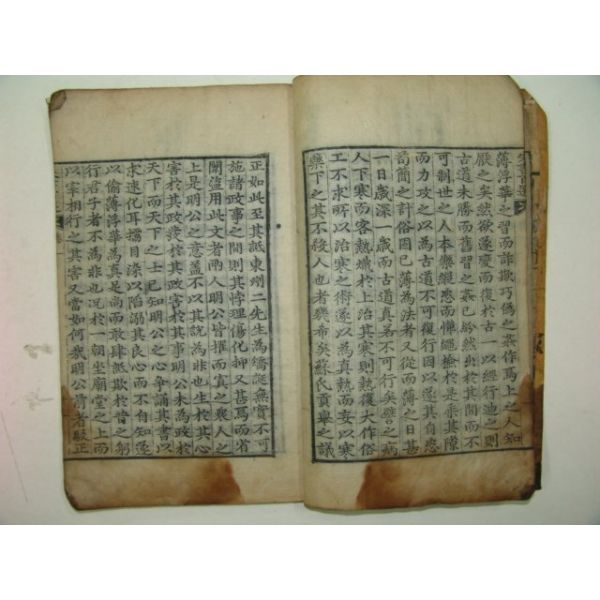 薄浮華之習而詐欺巧偽之姦作焉上之人知
厭之矣然欲遽變而復於古一以經行迪之則
古道未勝而舊習之姦已紛然出於其間而不
可制世之人本樂縱恣而憚繩檢於是乘其隙
而力攻之以為古道不可復行因以遂其自恣
苟簡之計俗固已薄為法者又從而薄之日甚
一日歲深一歲而古道真若不可行矣譬之病
人下寒而客熱熾於上治其寒則熱復大作俗
工不求所以治寒之術遂以為真熱而妄以寒
藥下之其不殺人也者幾希矣蘇氏貢舉之議
正如此至其詆東州二先生為矯誕無實不可
施諸政事之間則其悖理傷化抑又甚焉而省
闈盗用此文者兩人明公皆擢而寘之衆人之
上是明公之意蓋不以其說為非也生於其心
害於其政發於其政害於其事明公未為政於
天下而天下之士已知明公之心爭誦其書以
求速化耳擩目染以陷溺其良心而不自知遂
以偷薄浮華為真足尚而敢肆詆欺於昔之躬
行君子者不為非也况於一朝坐廟堂之上而
以宰相行之其害又當如何哉明公前者駁正